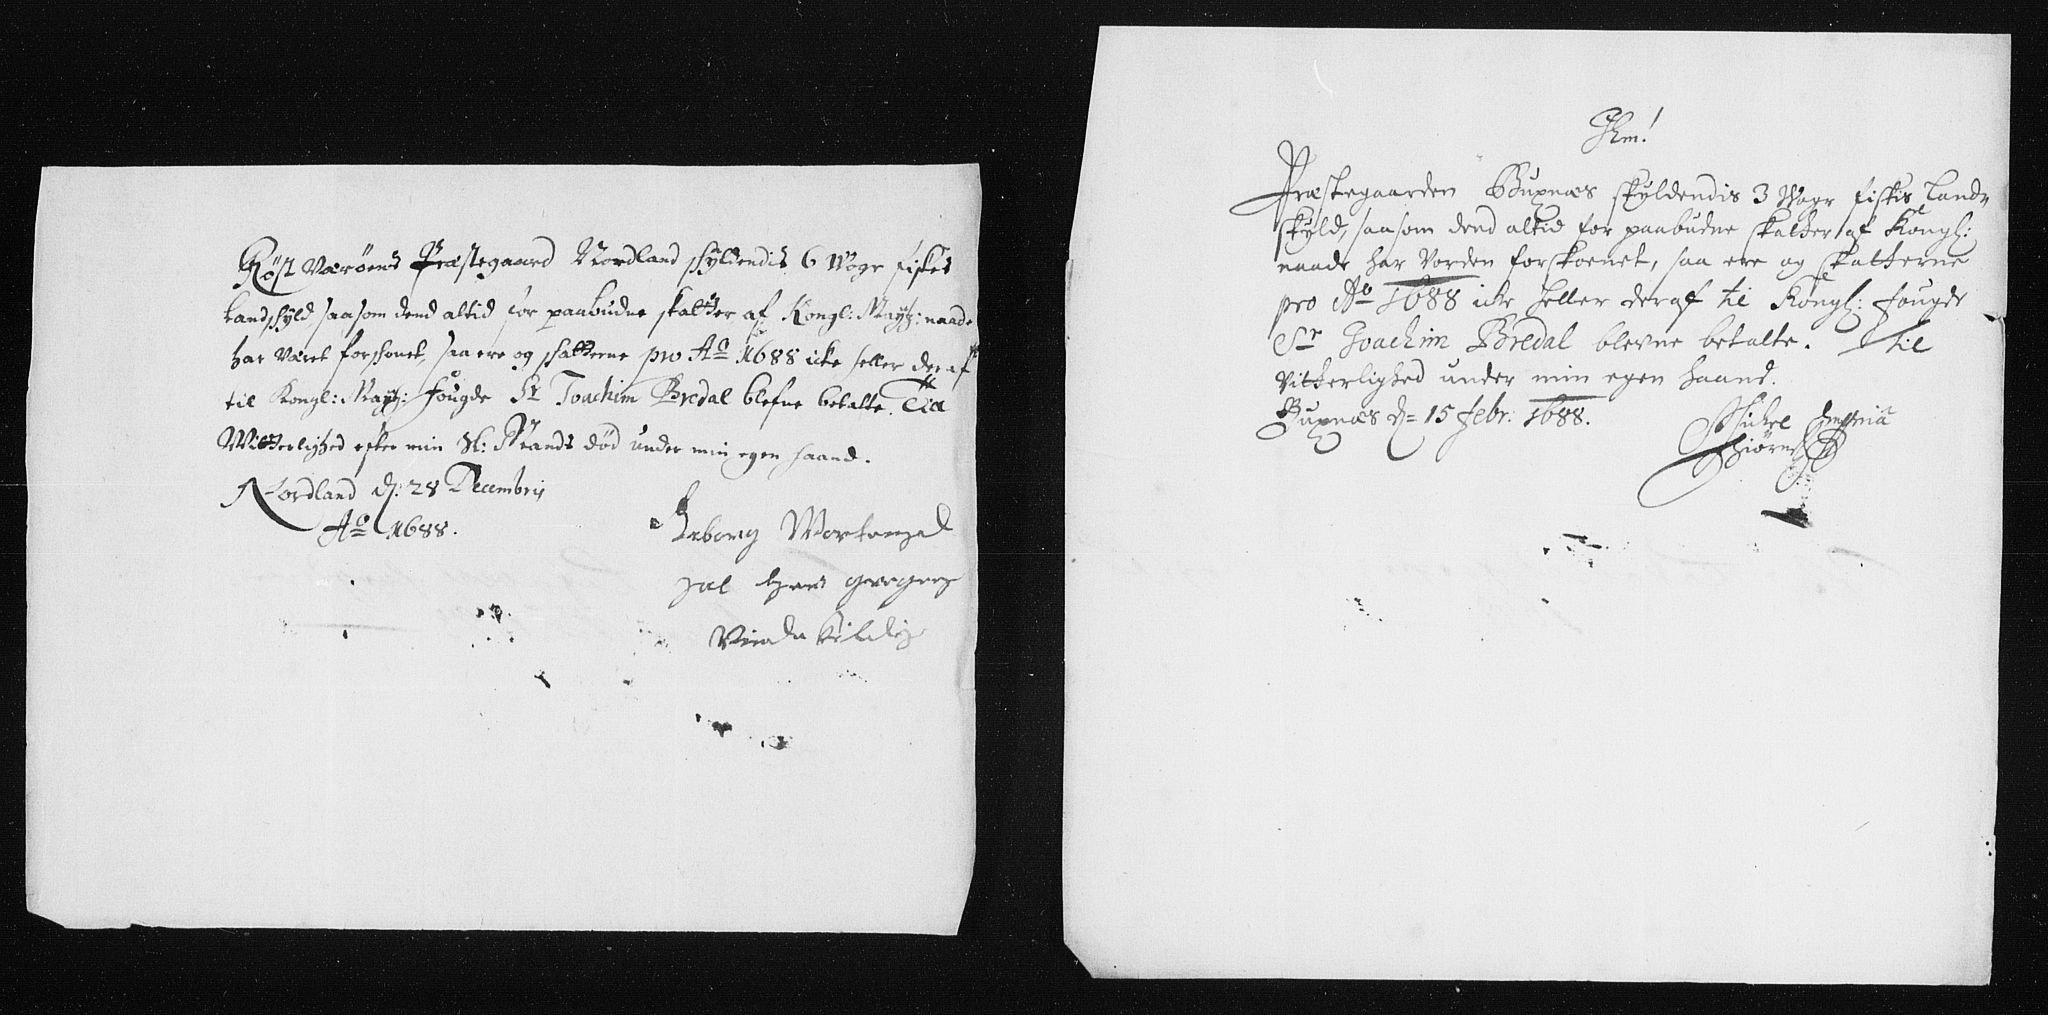 Röst Væröens Præstegaard Nordland skyldendis 6 Woge fiskes
Landskyld saasom dend altid for paabudne skatter af Kongl: Mayt: naade
har været forskonet, saa ere og skatterne pro Ao 1688 icke heller der af
til Kongl: Mayt: fougde Sr Joachim Bredal blefne betalte. Til
Witterlighed efter min Sl: Mands død under min egen haand.
Nordland d. 28 Decembris
Ao 1688.
Jeborg Mortens
Sal Hans
Ihm!
Præstegaarden Buxnæs skyldendis 3 Woge fiskis Land-
skyld, saasom dend altid for paabudne skatter af Kongl:
naade har vorden forskoenet, saa ere og skatterne
pro Ao 1688 icke heller deraf til Kongl: fougde
Sr Joachim Bredal blevne betalte. Til
vitterlighed under min egen haand.
Buxnæs d= 15 febr. 1688.
Mickel